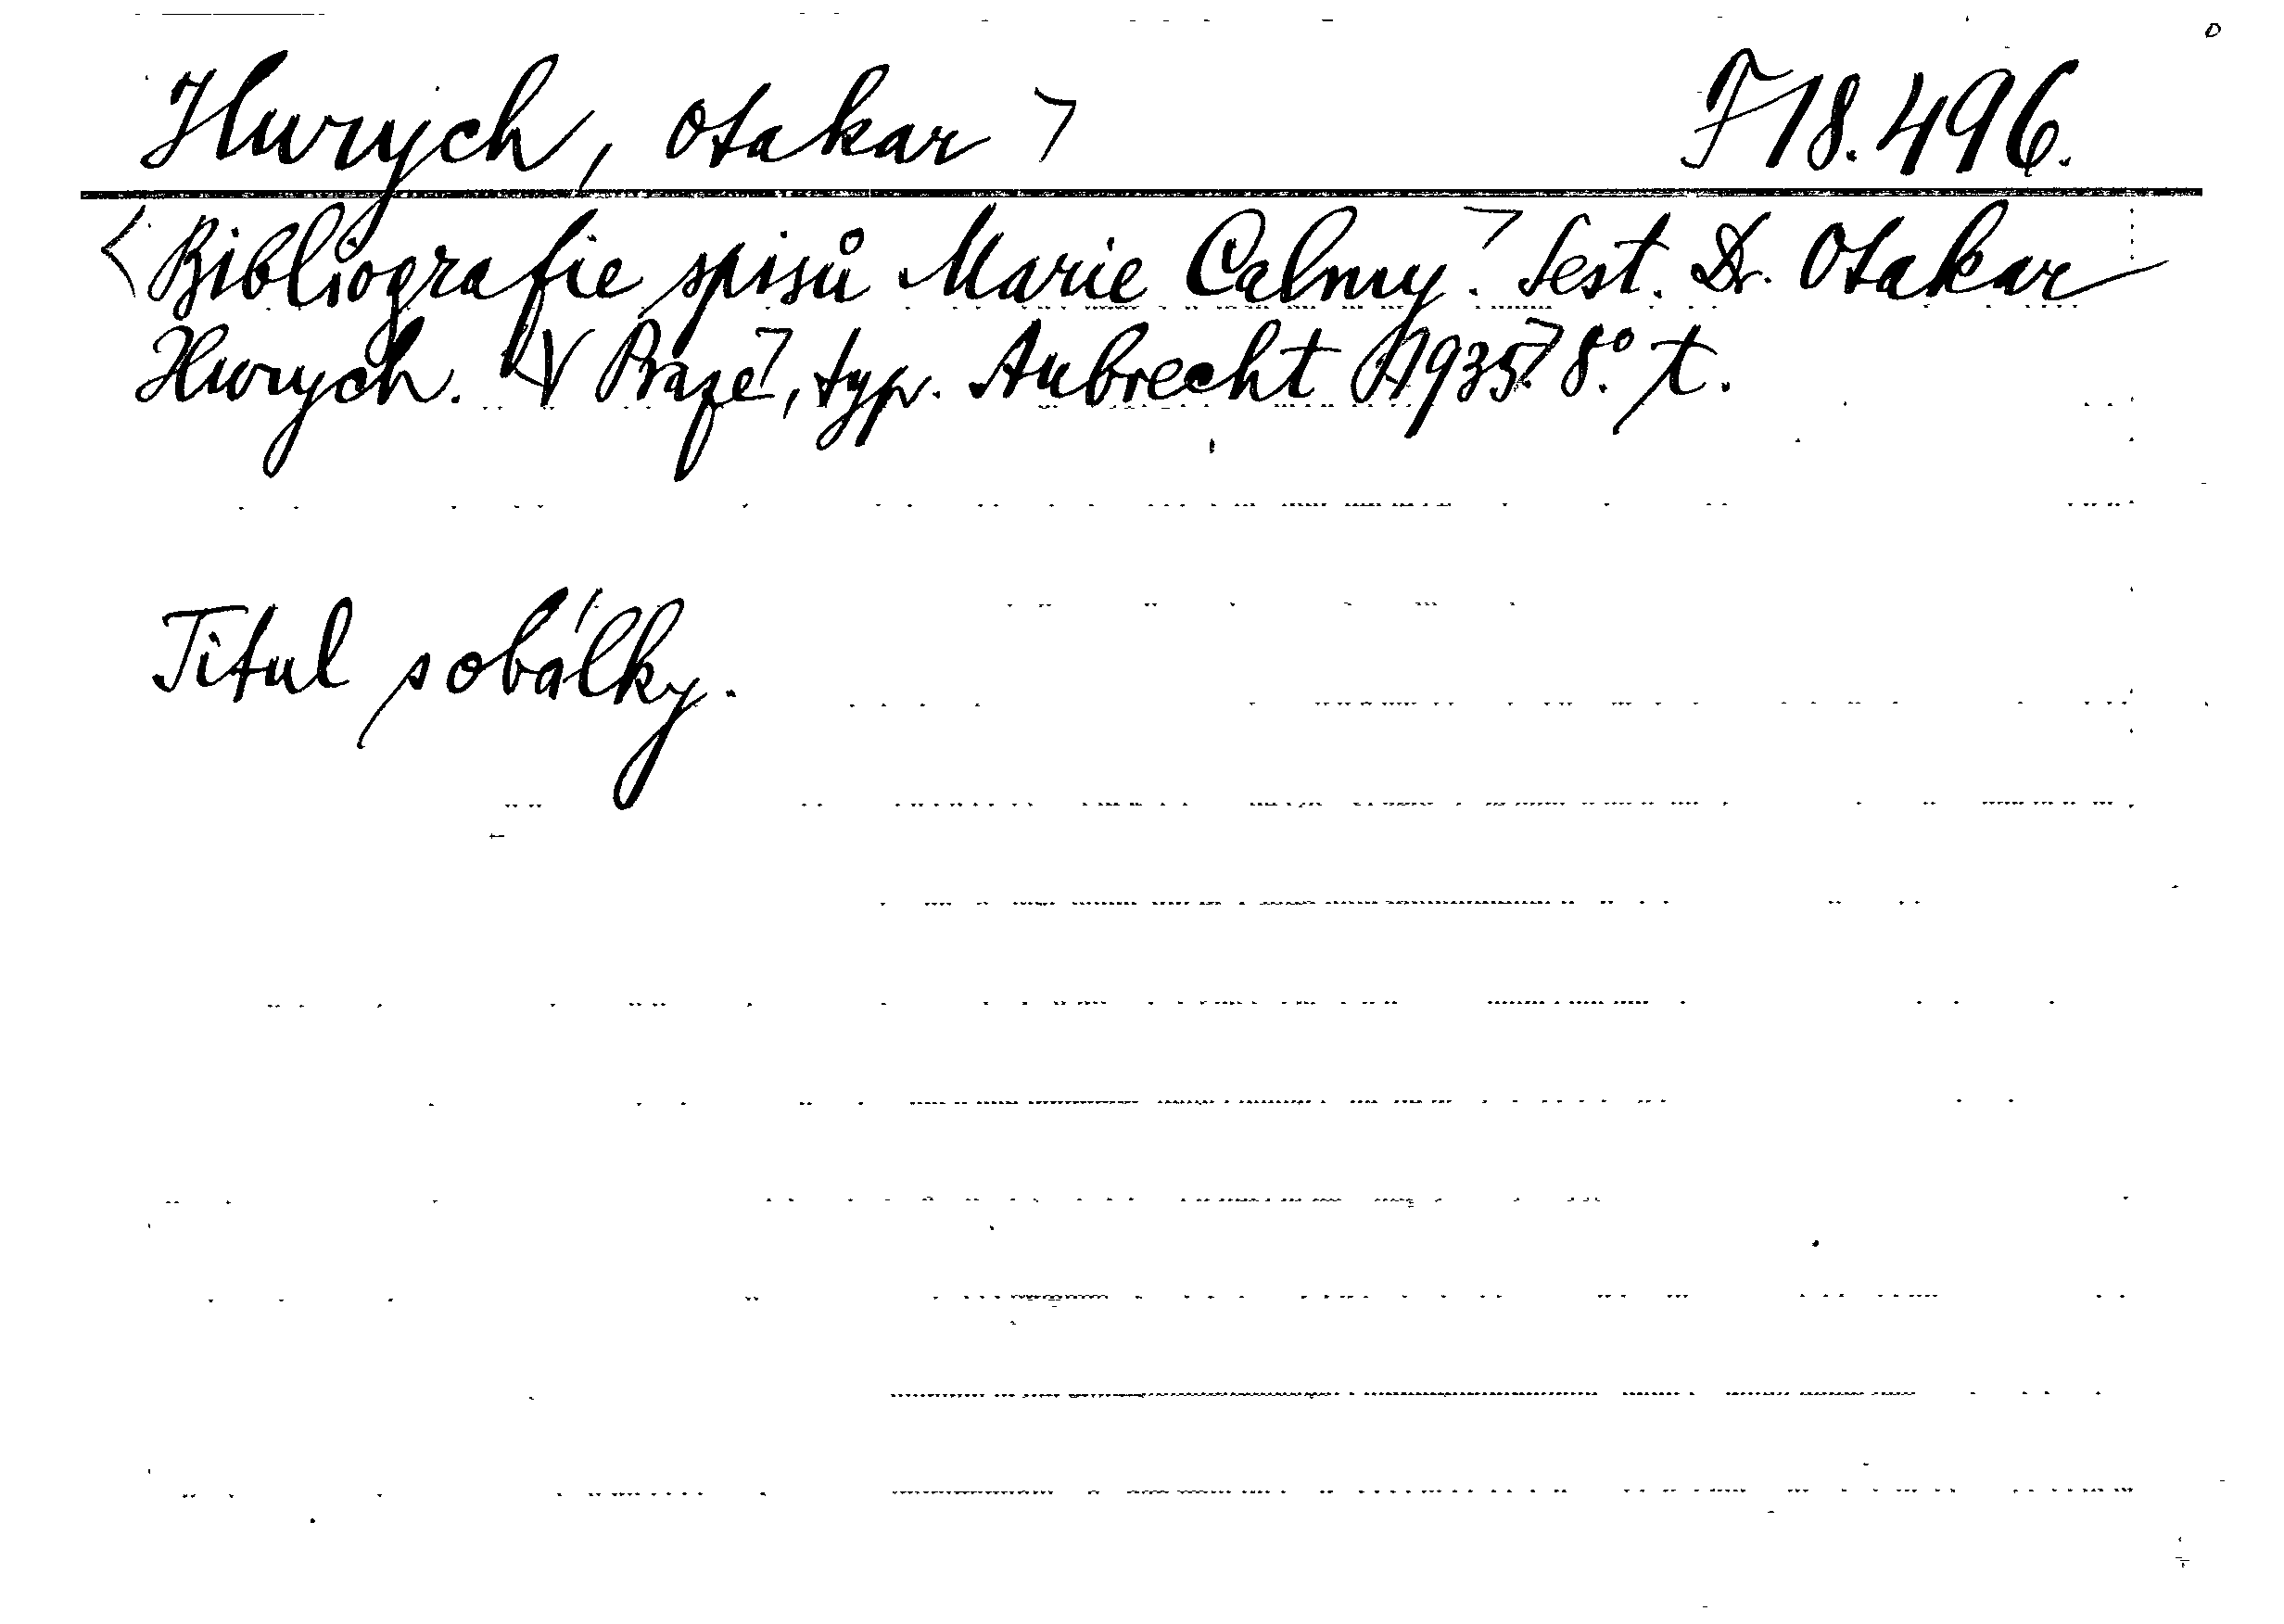 Hurych, Otakar ¬ F 18.496.
<Bibliografie spisů Marie Calmy.¬ Sest. Dr. Otakar
Hurych. <V Praze¬, typ. Aubrecht <1935.¬ 8.° t.
Titul s obálky.